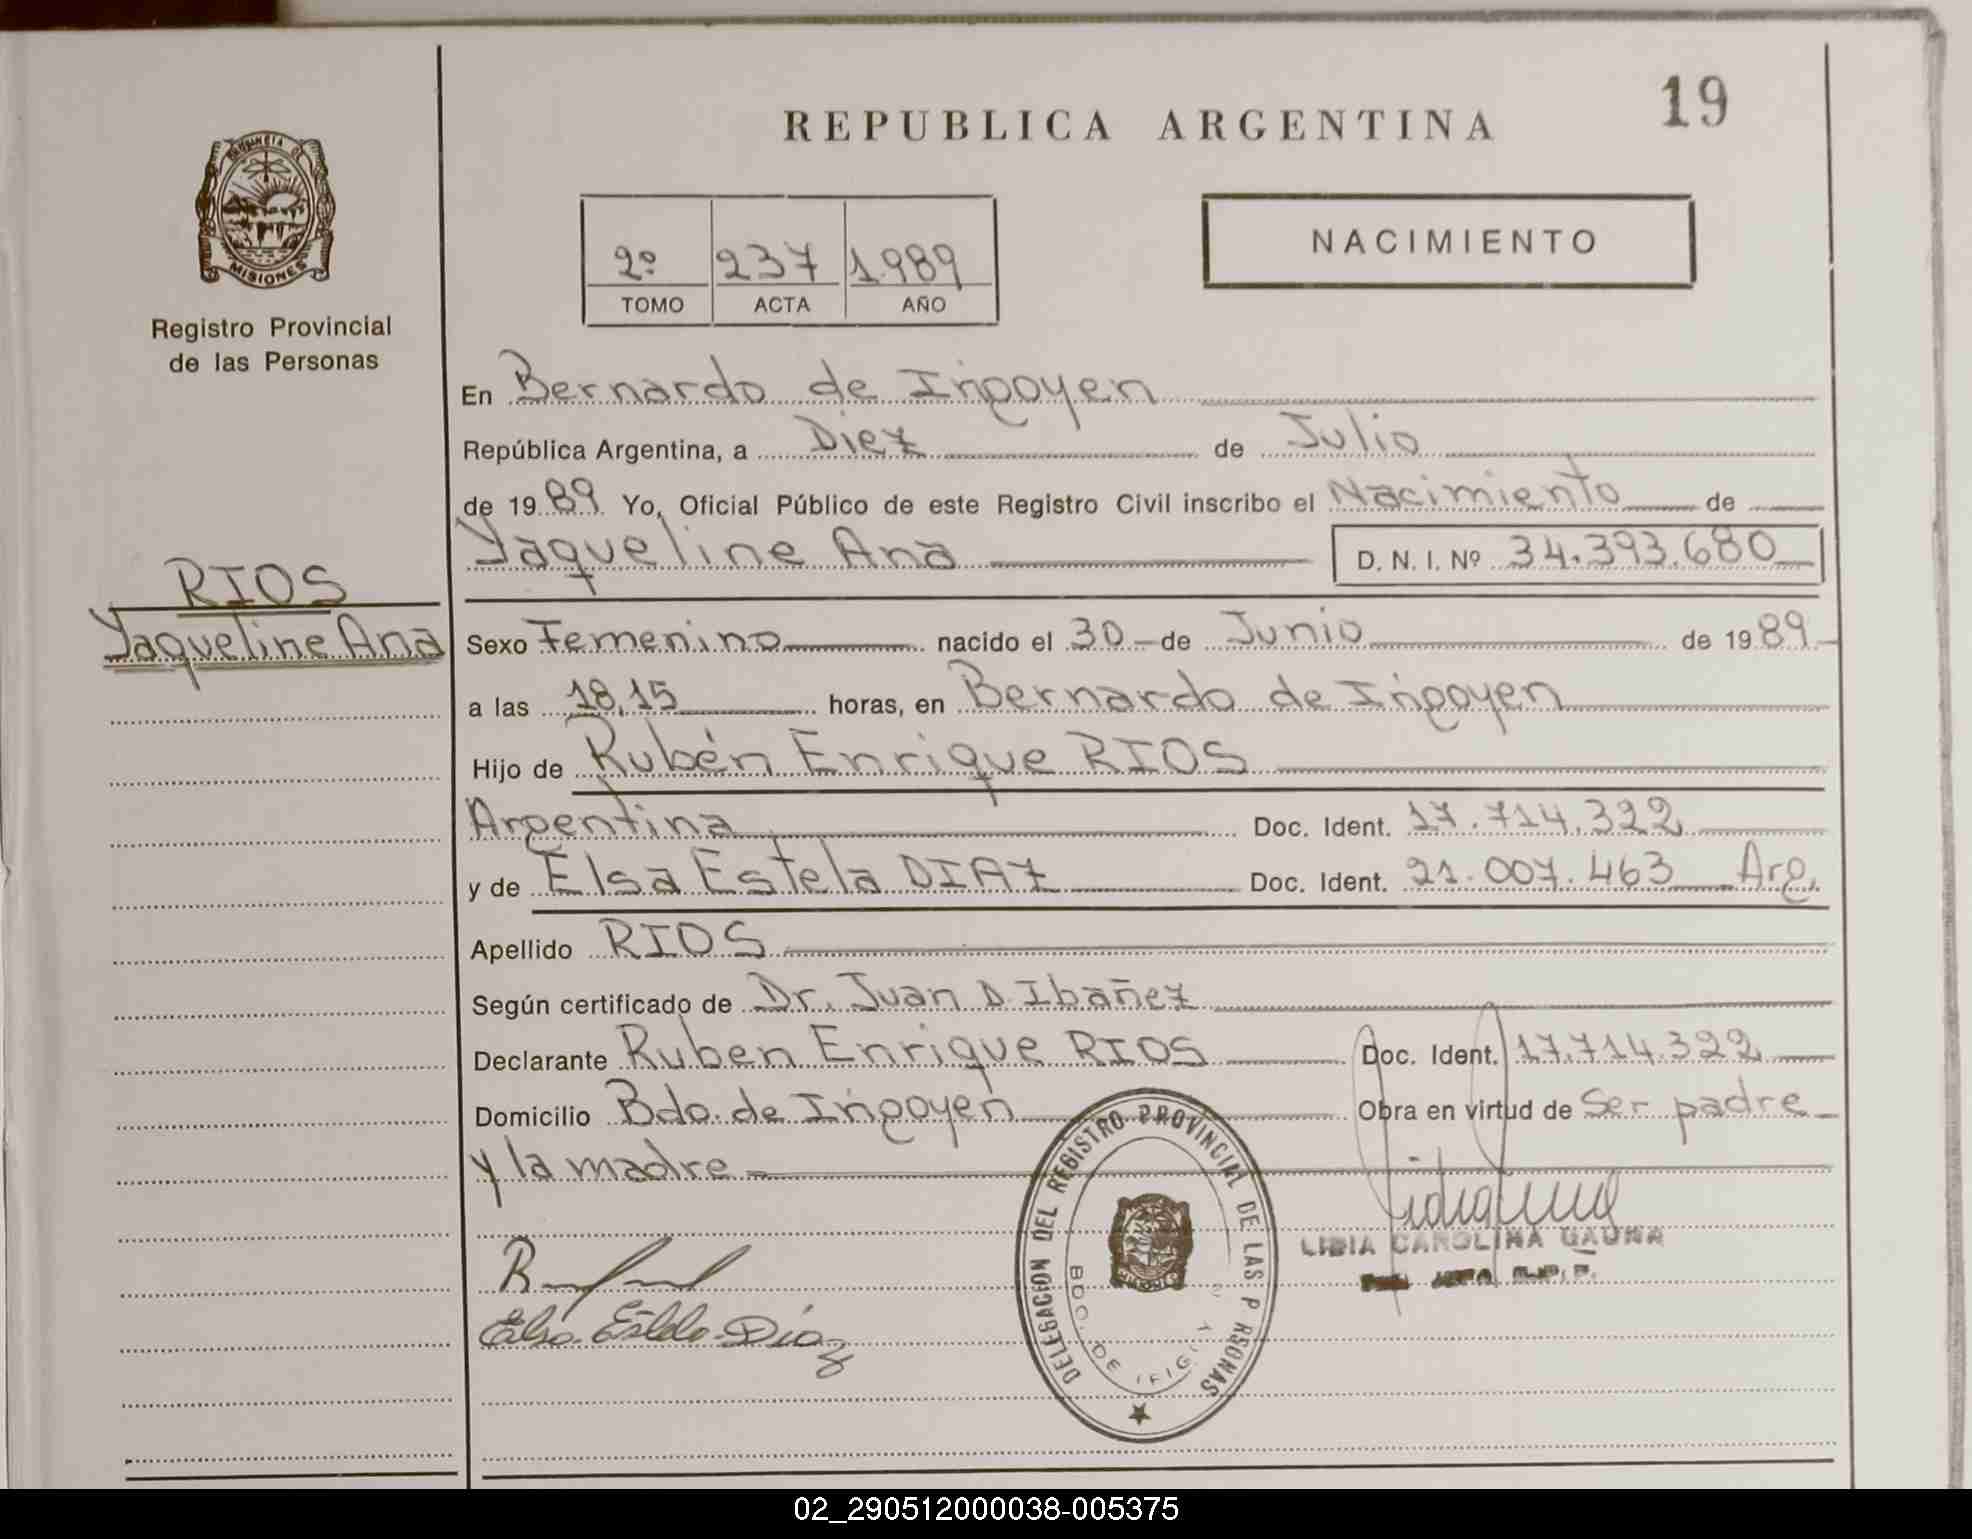 19
REPUBLICA ARGENTINA
PROVINCIA DE
MISIONES
Registro Provincial
de las Personas
2º 237 1.989
TOMO ACTA AÑO
NACIMIENTO
En Bernardo de Irigoyen
República Argentina, a Diez de Julio
de 1989 Yo, Oficial Público de este Registro Civil inscribo el Nacimiento de
Yaqueline Ana D. N. I. Nº 34.393.680
RIOS
Yaqueline Ana
Sexo Femenino nacido el 30 de Junio de 1989
a las 18,15 horas, en Bernardo de Irigoyen
Hijo de Rubén Enrique RIOS
Argentina Doc. Ident. 17.714.322
y de Elsa Estela DIAZ Doc. Ident. 21.007.463 Arg.
Apellido RIOS
Según certificado de Dr. Juan D. Ibañez
Declarante Ruben Enrique RIOS Doc. Ident. 17.714.322
Domicilio Bdo. de Irigoyen Obra en virtud de Ser padre
y la madre
DELEGACION DEL REGISTRO PROVINCIAL DE LAS P RSONAS
BDO. DE
MISIONES
LIDIA CAROLINA GAUNA
Elsa Estela Díaz
02_290512000038-005375